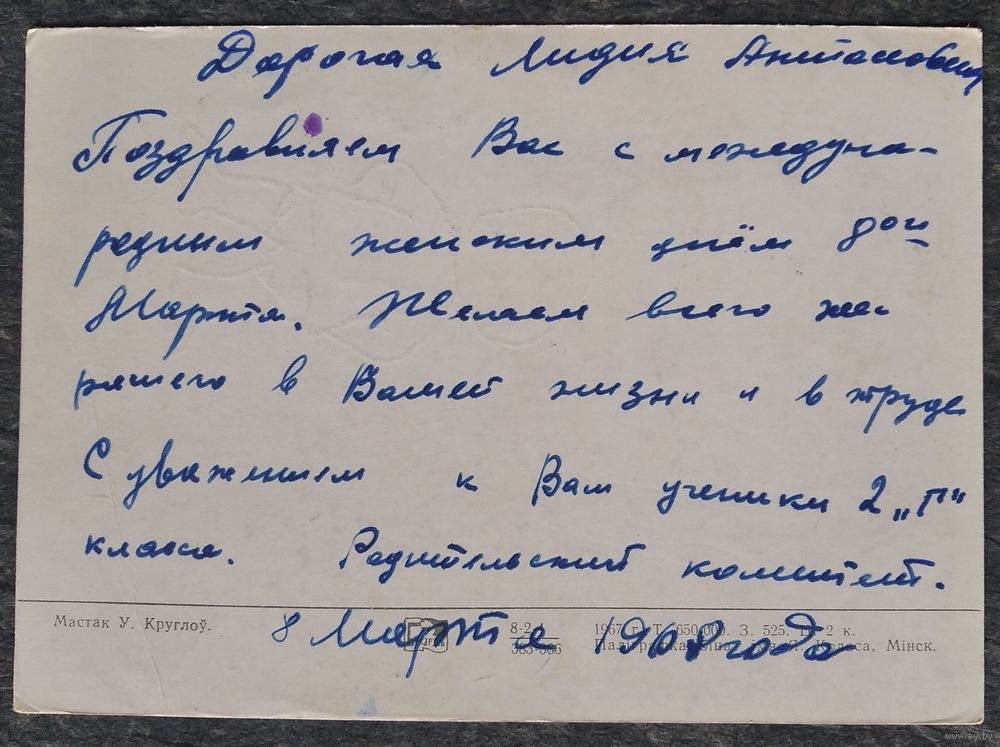 Дорогая Лидия Антановна
Поздравляем Вас с междуна-
родным женским днём 8ой
Марта. Желаем всего хо-
рошего в Вашей жизни и в труде
С уважением к Вам ученики 2 „Г"
класса. Родительский комитет.
8 Марта 1968 года
Мастак У. Круглоў.
8-2-4
383-386
1967 г. Т. 650 000. З. 525. 2 к.
Я. Коласа, Мінск.
www.ay.by